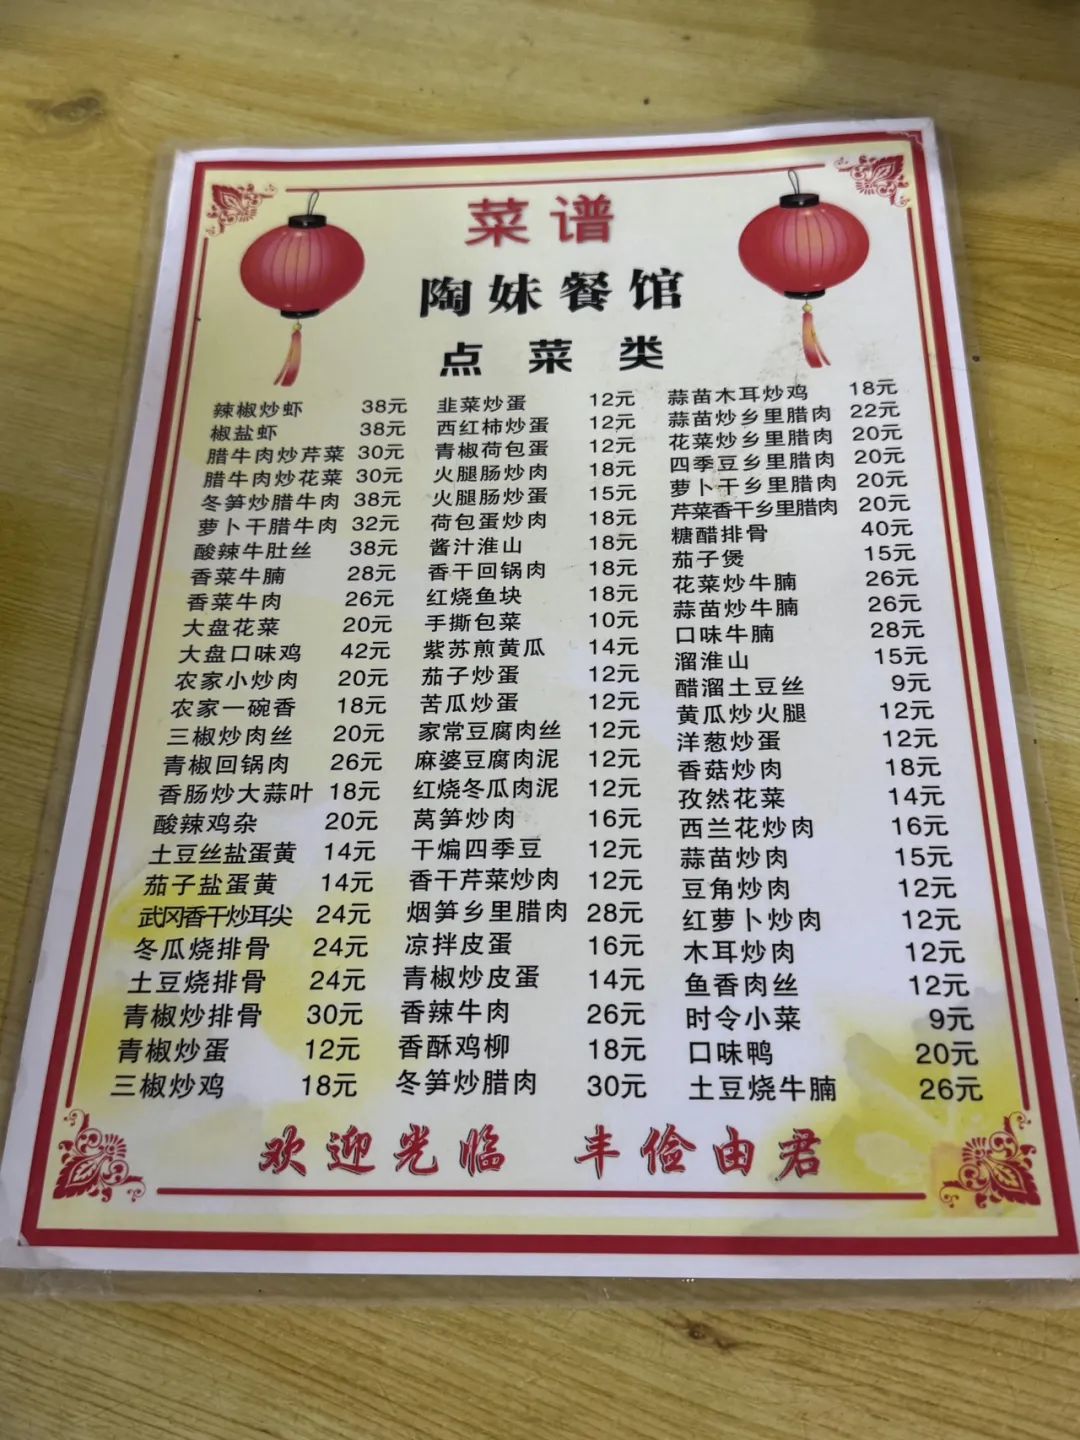 菜谱
陶妹餐馆
点菜类
辣椒炒虾 38元
椒盐虾 38元
腊牛肉炒芹菜 30元
腊牛肉炒花菜 30元
冬笋炒腊牛肉 38元
萝卜干腊牛肉 32元
酸辣牛肚丝 38元
香菜牛腩 28元
香菜牛肉 26元
大盘花菜 20元
大盘口味鸡 42元
农家小炒肉 20元
农家一碗香 18元
三椒炒肉丝 20元
青椒回锅肉 26元
香肠炒大蒜叶 18元
酸辣鸡杂 20元
土豆丝盐蛋黄 14元
茄子盐蛋黄 14元
武冈香干炒耳尖 24元
冬瓜烧排骨 24元
土豆烧排骨 24元
青椒炒排骨 30元
青椒炒蛋 12元
三椒炒鸡 18元
韭菜炒蛋 12元
西红柿炒蛋 12元
青椒荷包蛋 12元
火腿肠炒肉 18元
火腿肠炒蛋 15元
荷包蛋炒肉 18元
酱汁淮山 18元
香干回锅肉 18元
红烧鱼块 18元
手撕包菜 10元
紫苏煎黄瓜 14元
茄子炒蛋 12元
苦瓜炒蛋 12元
家常豆腐肉丝 12元
麻婆豆腐肉泥 12元
红烧冬瓜肉泥 12元
莴笋炒肉 16元
干煸四季豆 12元
香干芹菜炒肉 12元
烟笋乡里腊肉 28元
凉拌皮蛋 16元
青椒炒皮蛋 14元
香辣牛肉 26元
香酥鸡柳 18元
冬笋炒腊肉 30元
蒜苗木耳炒鸡 18元
蒜苗炒乡里腊肉 22元
花菜炒乡里腊肉 20元
四季豆乡里腊肉 20元
萝卜干乡里腊肉 20元
芹菜香干乡里腊肉 20元
糖醋排骨 40元
茄子煲 15元
花菜炒牛腩 26元
蒜苗炒牛腩 26元
口味牛腩 28元
溜淮山 15元
醋溜土豆丝 9元
黄瓜炒火腿 12元
洋葱炒蛋 12元
香菇炒肉 18元
孜然花菜 14元
西兰花炒肉 16元
蒜苗炒肉 15元
豆角炒肉 12元
红萝卜炒肉 12元
木耳炒肉 12元
鱼香肉丝 12元
时令小菜 9元
口味鸭 20元
土豆烧牛腩 26元
欢迎光临 丰俭由君